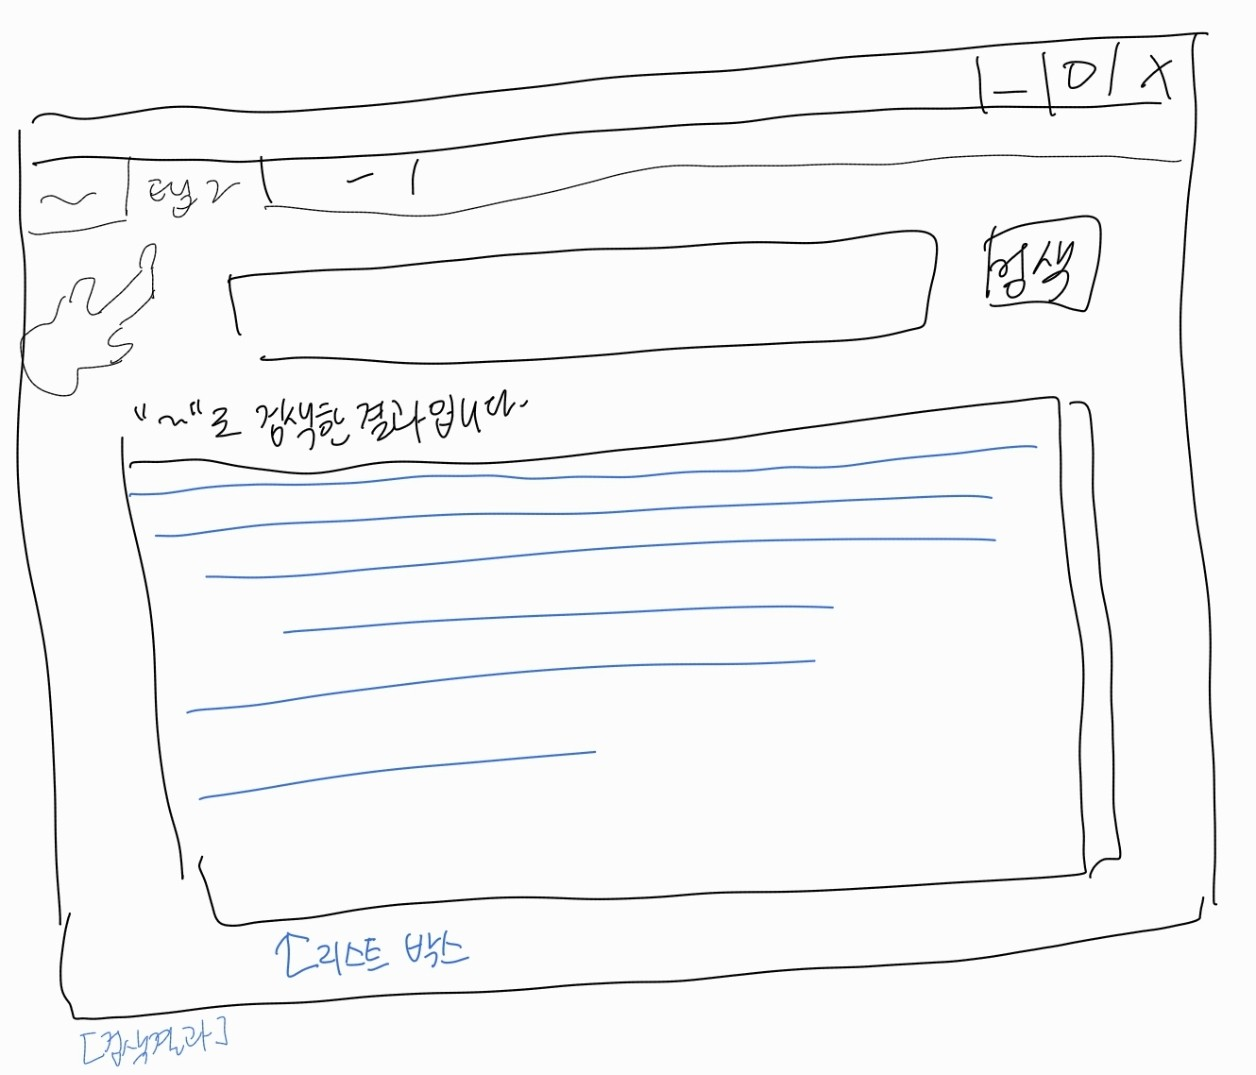 _ ㅁ X
~ 탭 2
검색
"~"로 검색한 결과입니다.
리스트 박스
[검색결과]